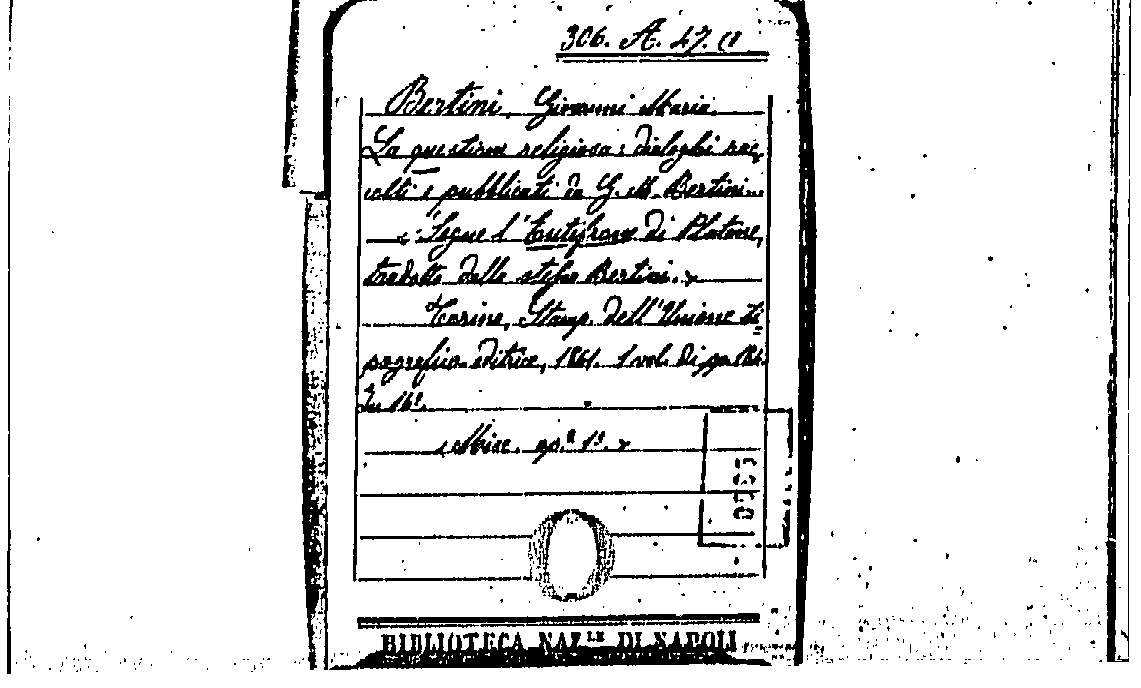 306. A. 47.
Bertini, Giovanni Maria.
La questione religiosa: dialoghi rac-
colti e pubblicati da G. M. Bertini.
Segue l'Eutifrone di Platone,
tradotto dallo stesso Bertini.
Torino, Stamp. dell'Unione ti=
pografico-editrice, 1861. 1 vol. di pp.
In 16º.
Misc. op.º 1º.
BIBLIOTECA NAZ.LE DI NAPOLI